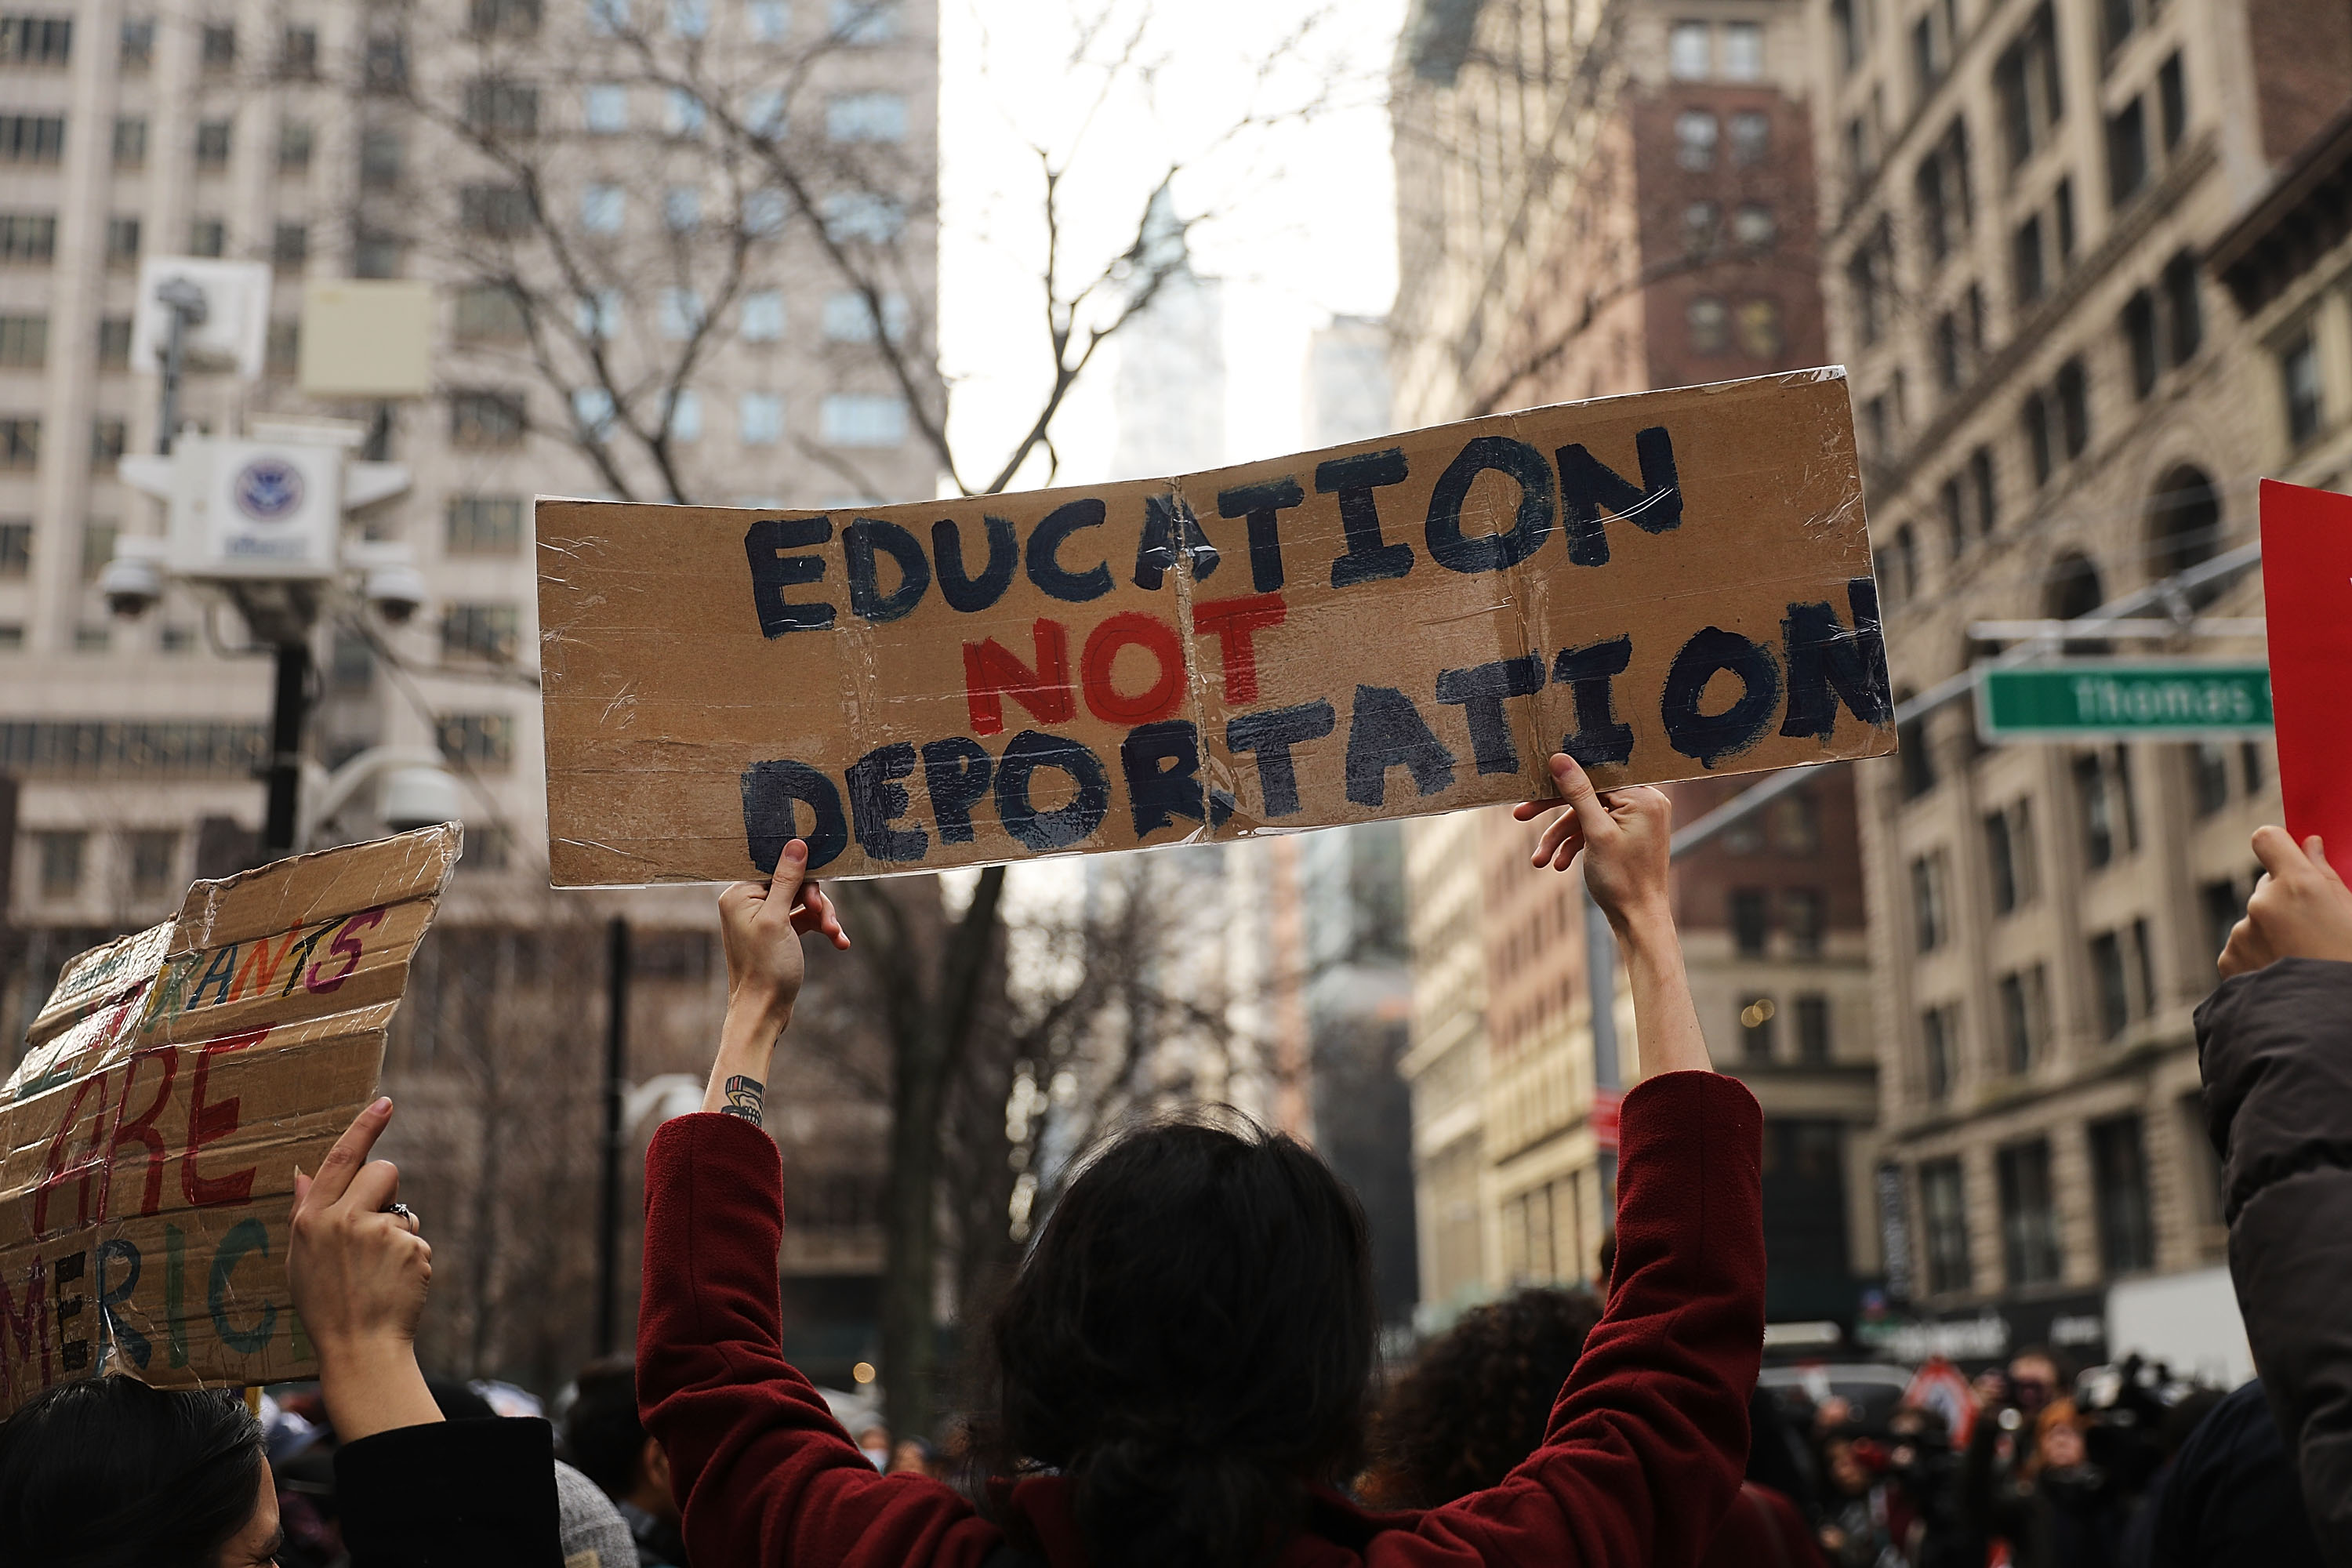 EDUCATION
NOT
DEPORTATION
RANTS
ARE
MERIC
Thomas